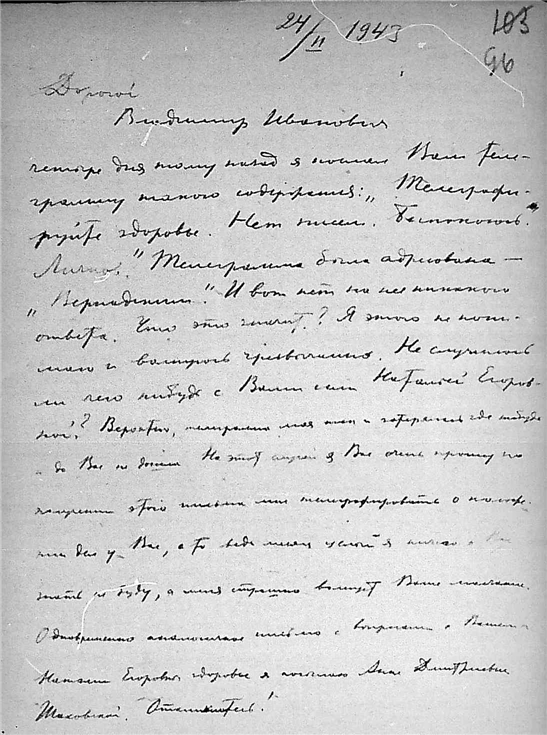 24/II 1943
105
96
Дорогой
Владимир Иванович
четыре дня тому назад я послал Вам теле-
грамму такого содержания: „Телеграфи-
руйте здоровье. Нет писем. Беспокоюсь.
Личков." Телеграмма была адресована —
„Вернадскому". И вот нет на нее никакого
ответа. Что это значит? Я этого не пони-
маю и волнуюсь чрезвычайно. Не случилось
ли чего нибудь с Вами или Натальей Егоров-
ной? Вероятно, телеграмма моя так и затерялась где нибудь
и до Вас не дошла. На этот случай я Вас очень прошу по
получении этого письма мне телеграфировать о положе-
нии дел у Вас, а то ведь месяц я ничего о
знать не буду, а меня страшно волнует Ваше молчание.
Одновременно аналогичное письмо с вопросами о Вашем и
Натальи Егоровны здоровье я посылаю Анне Дмитриевне
Шаховской. Откликнитесь!